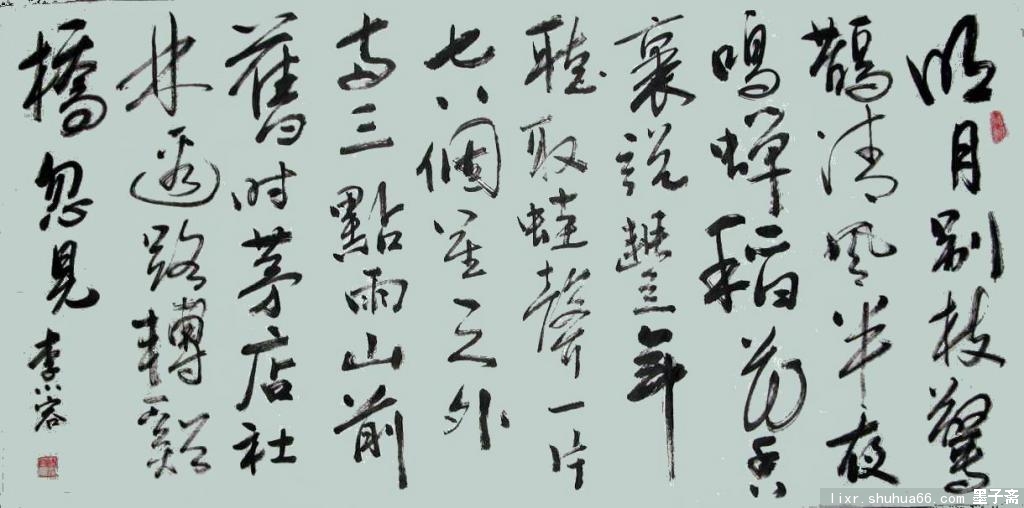 明月别枝驚
鵲清風半夜
鳴蟬稻花香
裏説豐年
聽取蛙聲一片
七八個星天外
两三點雨山前
舊时茅店社
林邊路轉谿
橋忽見
李小容
lixr.shuhua66.com 墨子斋